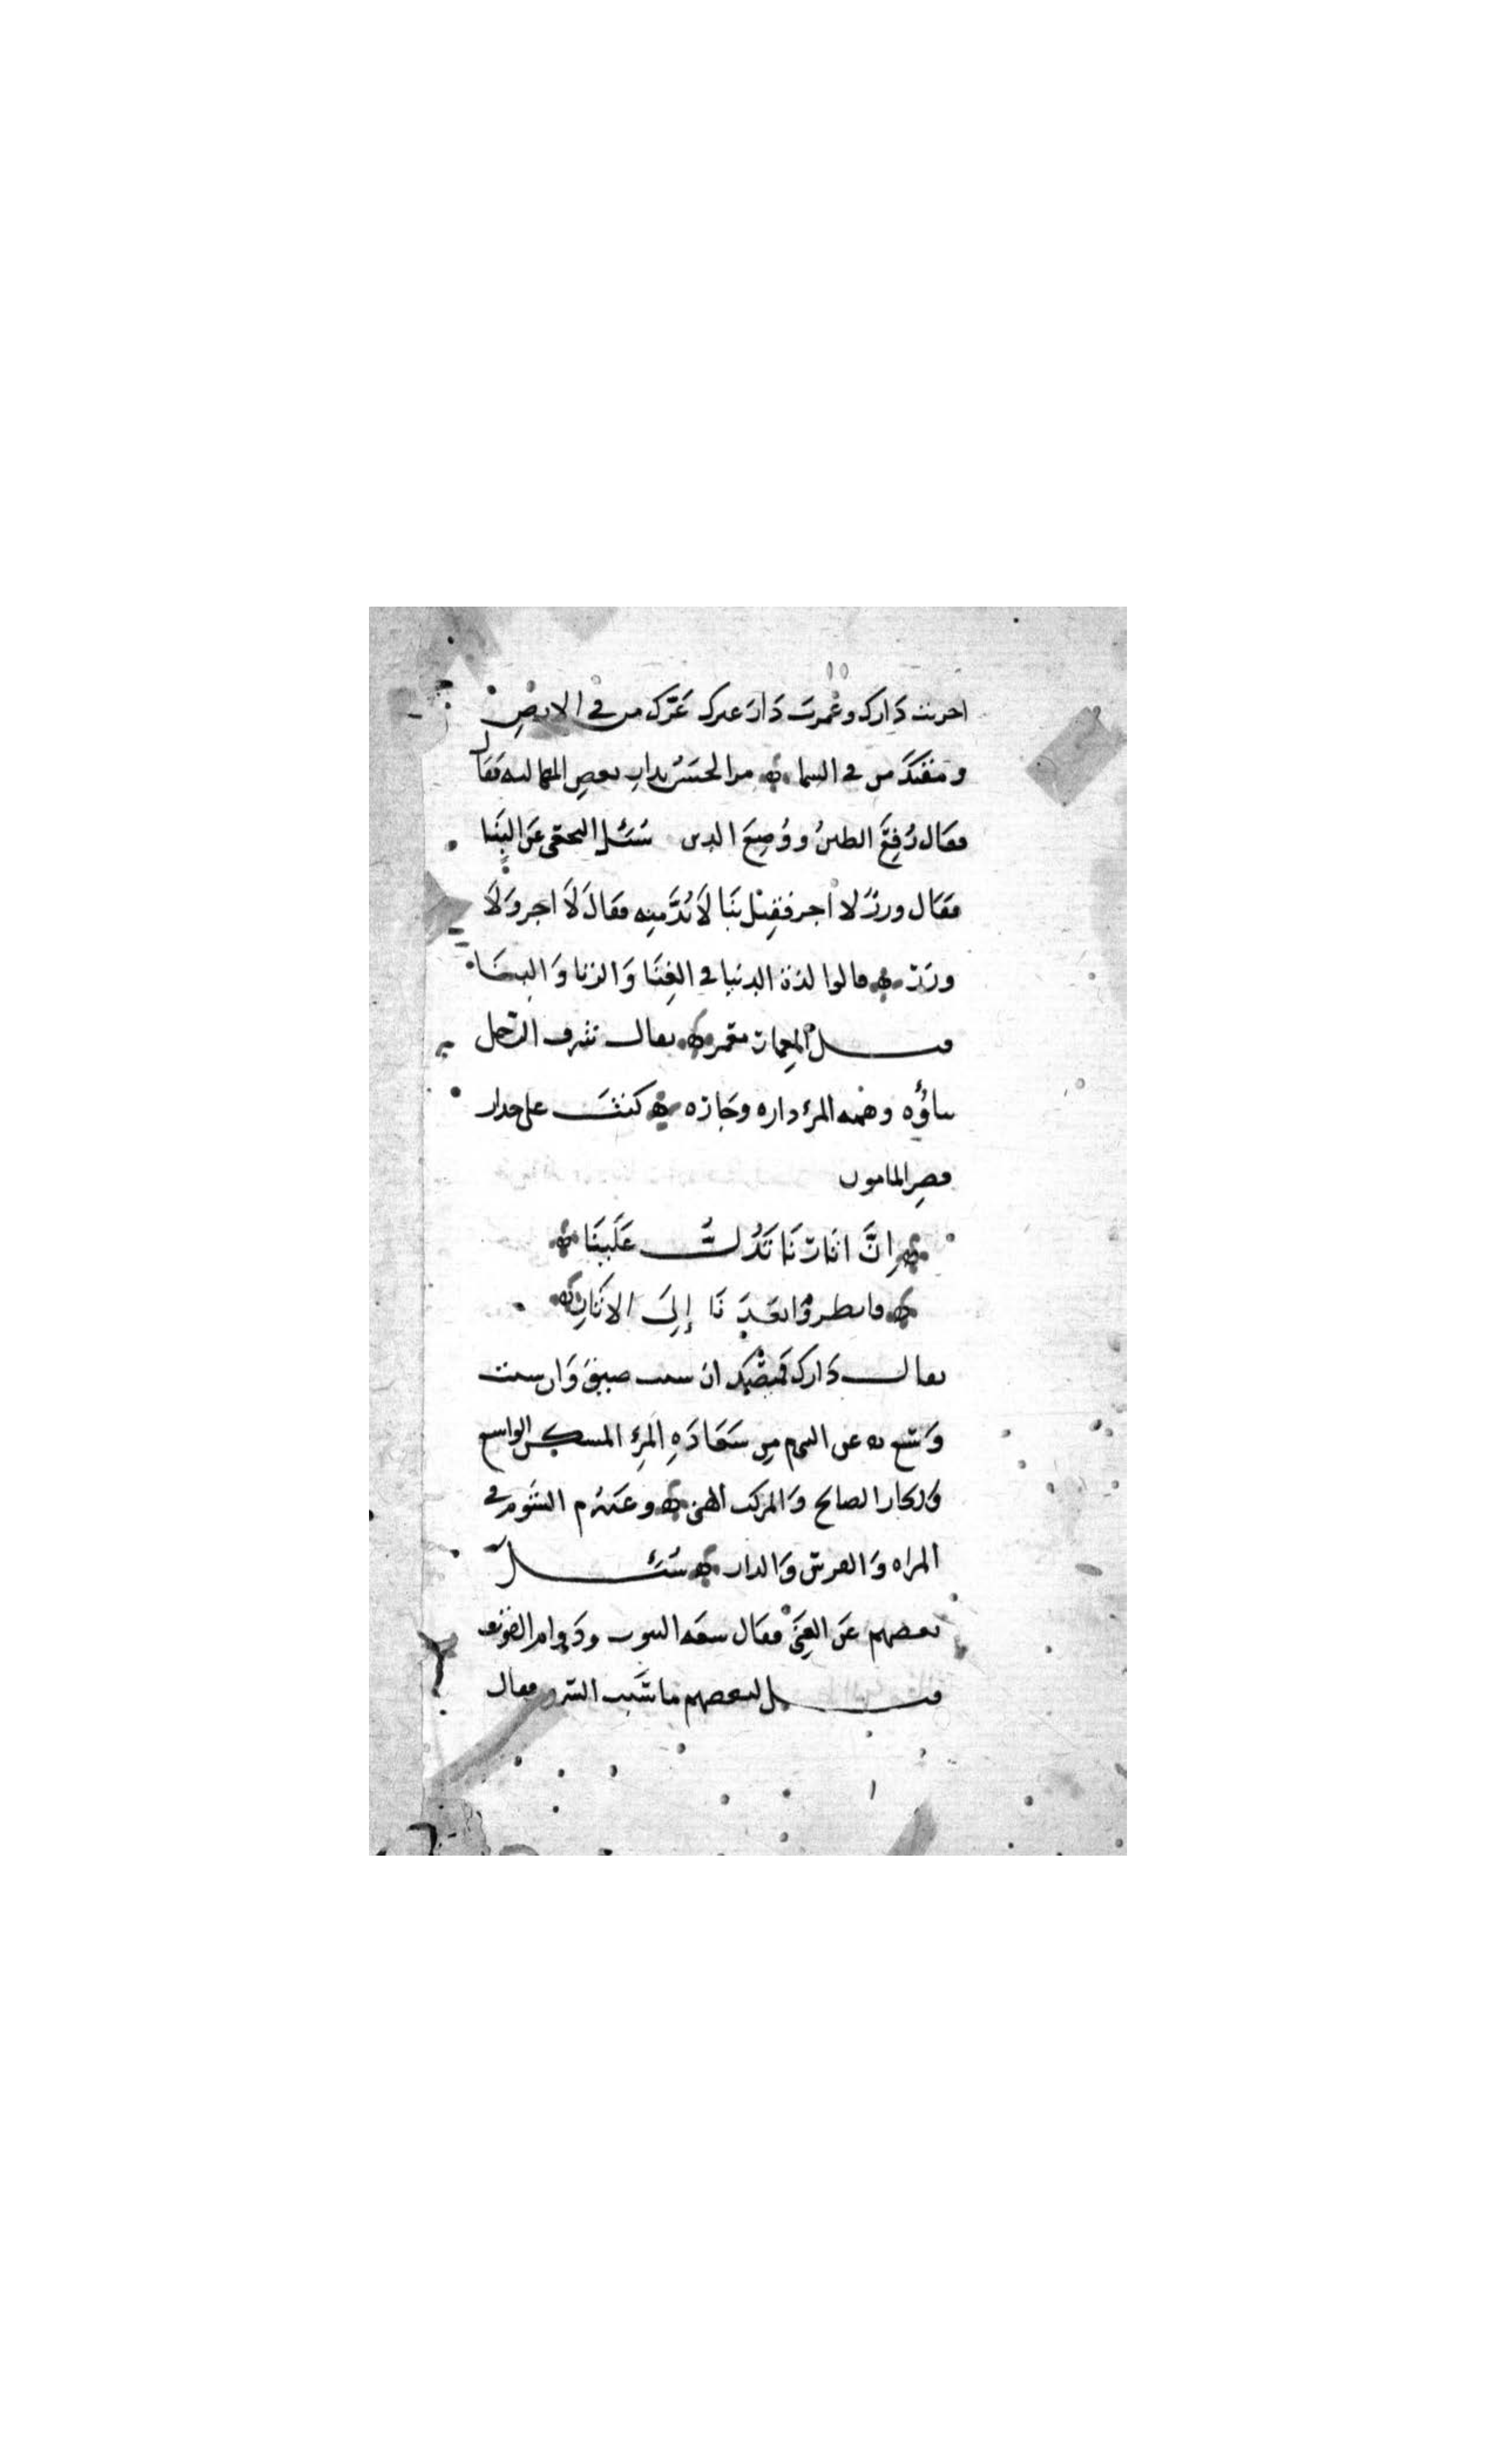 اخربت دارك وعمرت دار غيرك غرك من في الارض
ومقتك من في السما مر الحسن بدار بعض المهالبه فقال
فقال رفع الطين ووضع الدين سئل النخعي عن البنا
فقال وزر لا اجر فقيل بنا لا بد منه فقال لا اجر ولا
وزر قالوا لذة الدنيا في الغنا والزنا والبنا
قيل العمارة تعمر يقال شرف الرجل
بناؤه وهمه المرء داره وجاره كتب على جدار
قصر المامون
ان اثارنا تدل علينا
فانظروا بعدنا الى الاثار
يقال دارك قميصك ان سعت ضيق وان سعت
وسع من سعادة المرء المسكن الواسع
والجار الصالح والمركب الهني وعنه م الشوم في
المراه والفرس والدار سئل
بعضهم عن الغنى فقال سعه البيوت ودوام القوت
قيل لبعضهم ما السرور فقال